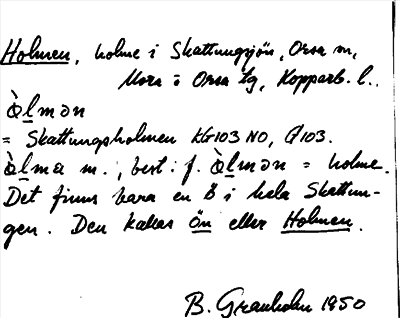 Holmen, holme i Skattungsjön, Orsa sn,
Mora o Orsa tg, Kopparb. l..
ò̀lmən
= Skattungsholmen KG103 NO, G103.
ò̀lma m., best. f. ò̀lmən = holme.
Det finns bara en ö i hela Skattun-
gen. Den kallas Ön eller Holmen.
B. Granholm 1950